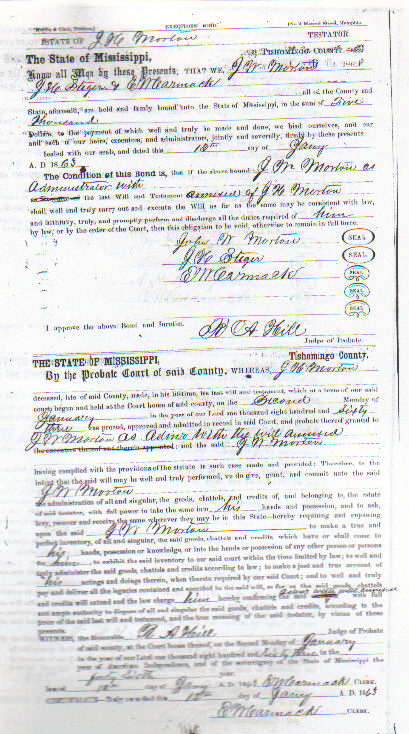 EXECUTORS' BOND.
ESTATE OF J H Morton TESTATOR
The State of Mississippi, TISHOMINGO COUNTY
Know all Men by these Presents, THAT WE, J W Morton
J H Steger & E W Carmack all of the County and
State, aforesaid, am held and firmly bound unto the State of Mississippi, in the sum of Five
thousand
Dollars, to the payment of which well and truly be made and done, we bind ourselves, and our
and each of our heirs, executors, and administrators, jointly and severally, firmly by these presents.
Sealed with our seals, and dated this 12th day of Jany
A. D. 1863
The Condition of this Bond is, that if the above bound J W Morton as
Administrator with
the last Will and Testament annexed of J H Morton
shall well and truly carry out and execute the Will as far as the same may be consistent with law,
and faithfully, truly, and promptly perform and discharge all the duties required of him
by law, or by the order of the Court, then this obligation to be void, otherwise to remain in full force.
John W Morton SEAL
J H Steger SEAL
E W Carmack SEAL
SEAL
SEAL
I approve the above Bond and Sureties.
R A Hill
Judge of Probate.
THE STATE OF MISSISSIPPI, Tishomingo County.
By the Probate Court of said County, WHEREAS, J H Morton
deceased, late of said County, made, in his lifetime, his last will and testament, which at a term of our said
court begun and held at the Court house of said county, on the Second Monday of
January in the year of our Lord one thousand eight hundred and sixty
three was proved, approved and admitted to record in said Court, and probate thereof granted to
J W Morton as Admr with the will annexed
the executors thereof and therein appointed; and the said J W Morton
having complied with the provisions of the statute in such case made and provided: Therefore, to the
intent that the said will may be well and truly performed, we do give, grant, and commit unto the said
J W Morton
the administration of all and singular, the goods, chattels, and credits of, and belonging to, the estate
of said testator, with full power to take the same into his hands and possession, and to ask,
levy, recover and receive the same wherever they may be in this State—hereby requiring and enjoining
upon the said J W Morton to make a true and
perfect inventory, of all and singular, the said goods, chattels and credits, which have or shall come to
his hands, possession or knowledge, or into the hands or possession of my other person or persons
for him, to exhibit the said inventory to our said court within the time limited by law; to well and
truly administer the said goods, chattels and credits according to law; to make a just and true account of
his actings and doings therein, when thereto required by our said Court; and to well and truly
pay and deliver all the legacies contained and specified in the said will, so far as the said goods, chattels
and credits will extend and the law charge him hereby confirming the said with will annexed in full
and ample authority to dispose of all and singular the said goods, chattels and credits, according to the
of the said last will and testament, and the true meaning of the said testator, by virtue of these
presents.
WITNESS, the Honorable R A Hill Judge of Probate
of said county, at the court house thereof, on the Second Monday of January
in the year of our Lord one thousand eight hundred and sixty three in the
year of American Independence, and of the sovereignty of the State of Mississippi the
forty sixth
Issued 12th day of Jany A. D. 1863 E W Carmack CLERK.
12th day of Jany A. D. 1863
E W Carmack CLERK.